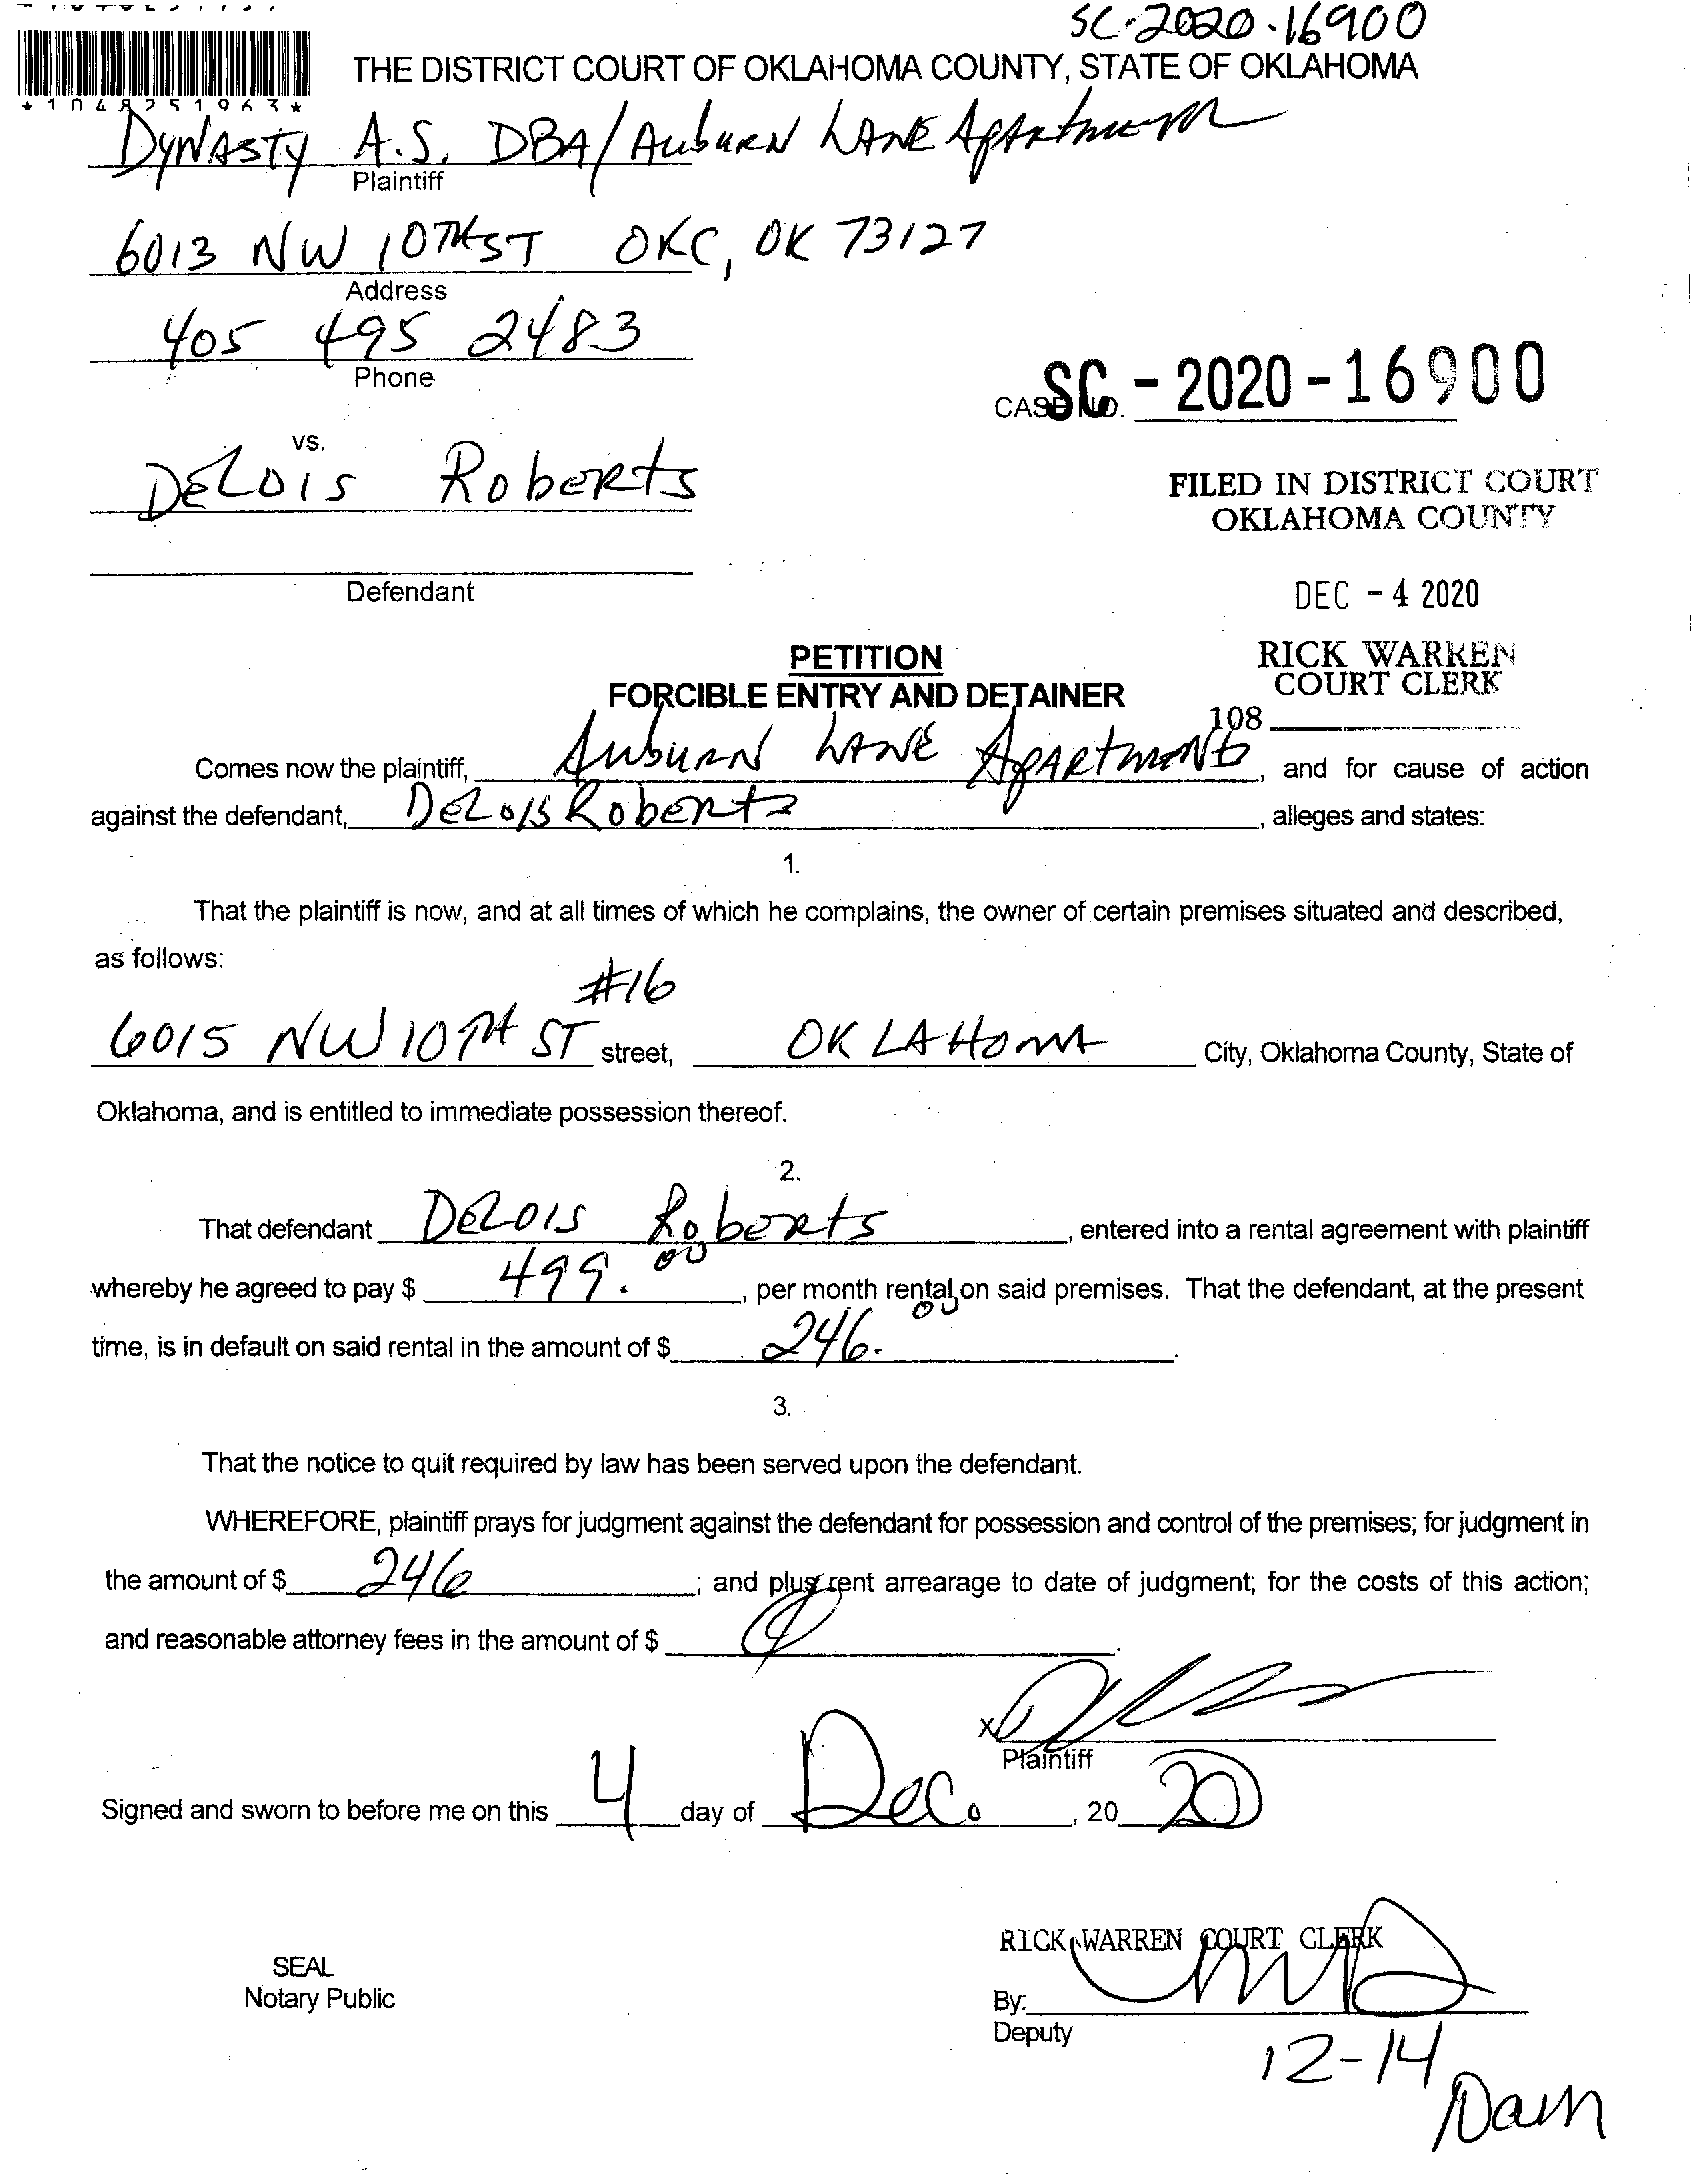 SC-2020-16900
THE DISTRICT COURT OF OKLAHOMA COUNTY, STATE OF OKLAHOMA
*1048251963*
DYNASTY A.S. DBA/AUBURN LANE Apartment
Plaintiff
6013 NW 10TH ST OKC, OK 73127
Address
405 495 2483
Phone
CASE NO. SC - 2020 - 16900
vs.
DELOIS Roberts
FILED IN DISTRICT COURT
OKLAHOMA COUNTY
Defendant
DEC - 4 2020
PETITION
RICK WARREN
COURT CLERK
FORCIBLE ENTRY AND DETAINER
108
Comes now the plaintiff, AUBURN LANE APARTMENTS, and for cause of action
against the defendant, DELOIS Roberts, alleges and states:
1.
That the plaintiff is now, and at all times of which he complains, the owner of certain premises situated and described,
as follows:
#16
6015 NW 10TH ST street, OKLAHOMA City, Oklahoma County, State of
Oklahoma, and is entitled to immediate possession thereof.
2.
That defendant DELOIS Roberts, entered into a rental agreement with plaintiff
whereby he agreed to pay $ 499.00, per month rental on said premises. That the defendant, at the present
time, is in default on said rental in the amount of $ 246.00.
3.
That the notice to quit required by law has been served upon the defendant.
WHEREFORE, plaintiff prays for judgment against the defendant for possession and control of the premises; for judgment in
the amount of $ 246; and plus rent arrearage to date of judgment; for the costs of this action;
and reasonable attorney fees in the amount of $ .
x
Plaintiff
Signed and sworn to before me on this 4 day of Dec., 20 20
RICK WARREN COURT CLERK
SEAL
Notary Public
By:
Deputy
12-14